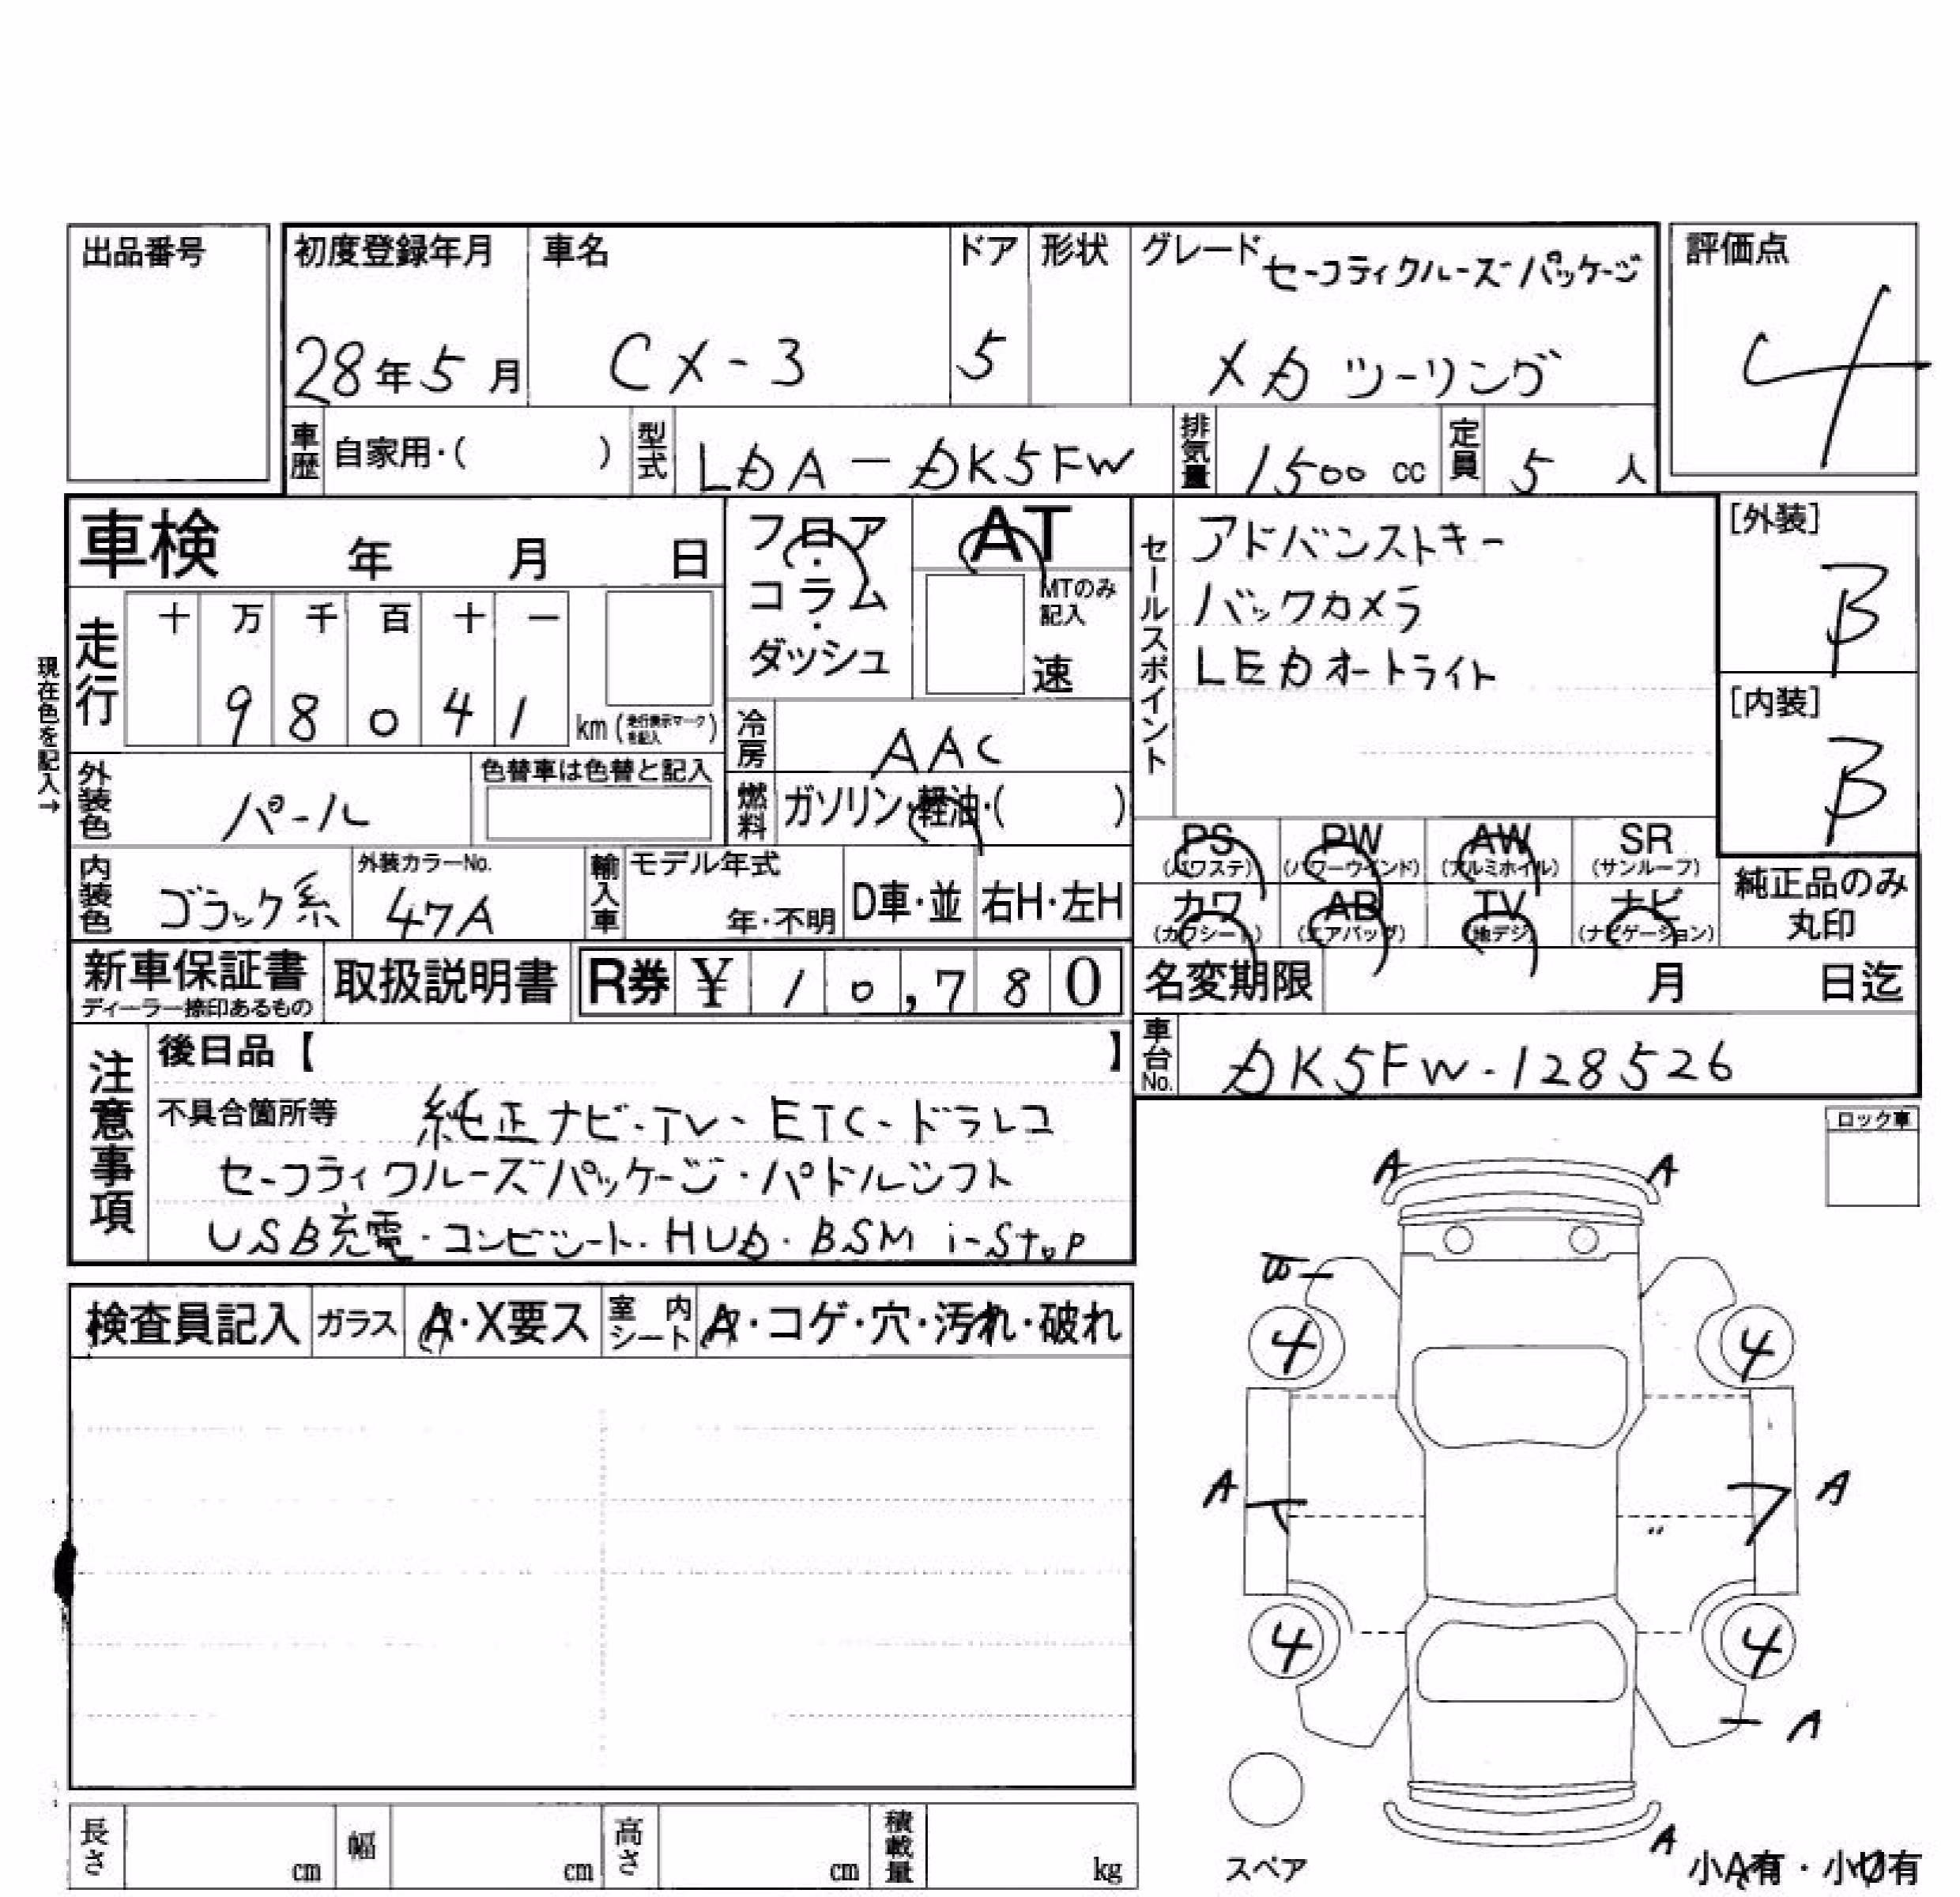 出品番号
初度登録年月 車名 ドア 形状 グレード セーフティクルーズパッケージ 評価点
28年5月 CX-3 5 メカ ツーリング 4
車歴 自家用・( ) 型式 LDA-DK5FW 排気量 1500 cc 定員 5 人
車検 年 月 日
フロア・コラム・ダッシュ
AT
MTのみ記入
速
セールスポイント
アドバンストキー
バックカメラ
LEDオートライト
[外装]
B
[内装]
B
現在色を記入→
走行 十 万 千 百 十 一
9 8 0 4 1 km (走行表示マークを記入)
冷房 AAC
燃料 ガソリン・軽油・( )
外装色 パール 色替車は色替と記入
内装色 ブラック系 外装カラーNo. 47A 輸入車 モデル年式 年・不明 D車・並 右H・左H
PS (パワステ) PW (パワーウインド) AW (アルミホイル) SR (サンルーフ)
カワ (カワシート) AB (エアバッグ) TV (地デジ) ナビ (ナビゲーション)
純正品のみ
丸印
新車保証書 ディーラー捺印あるもの 取扱説明書 R券 ¥ 10,780
名変期限 月 日迄
車台No. DK5FW-128526
注意事項
後日品【 】
不具合箇所等 純正ナビ・TV・ETC・ドラレコ
セーフティクルーズパッケージ・パドルシフト
USB充電・コンビシート・HUD・BSM i-Stop
ロック車
検査員記入 ガラス A・X要ス 室内シート A・コゲ・穴・汚れ・破れ
A A
4 4
A A
4 4
A
A
スペア
小A有・小U有
長さ cm 幅 cm 高さ cm 積載量 kg